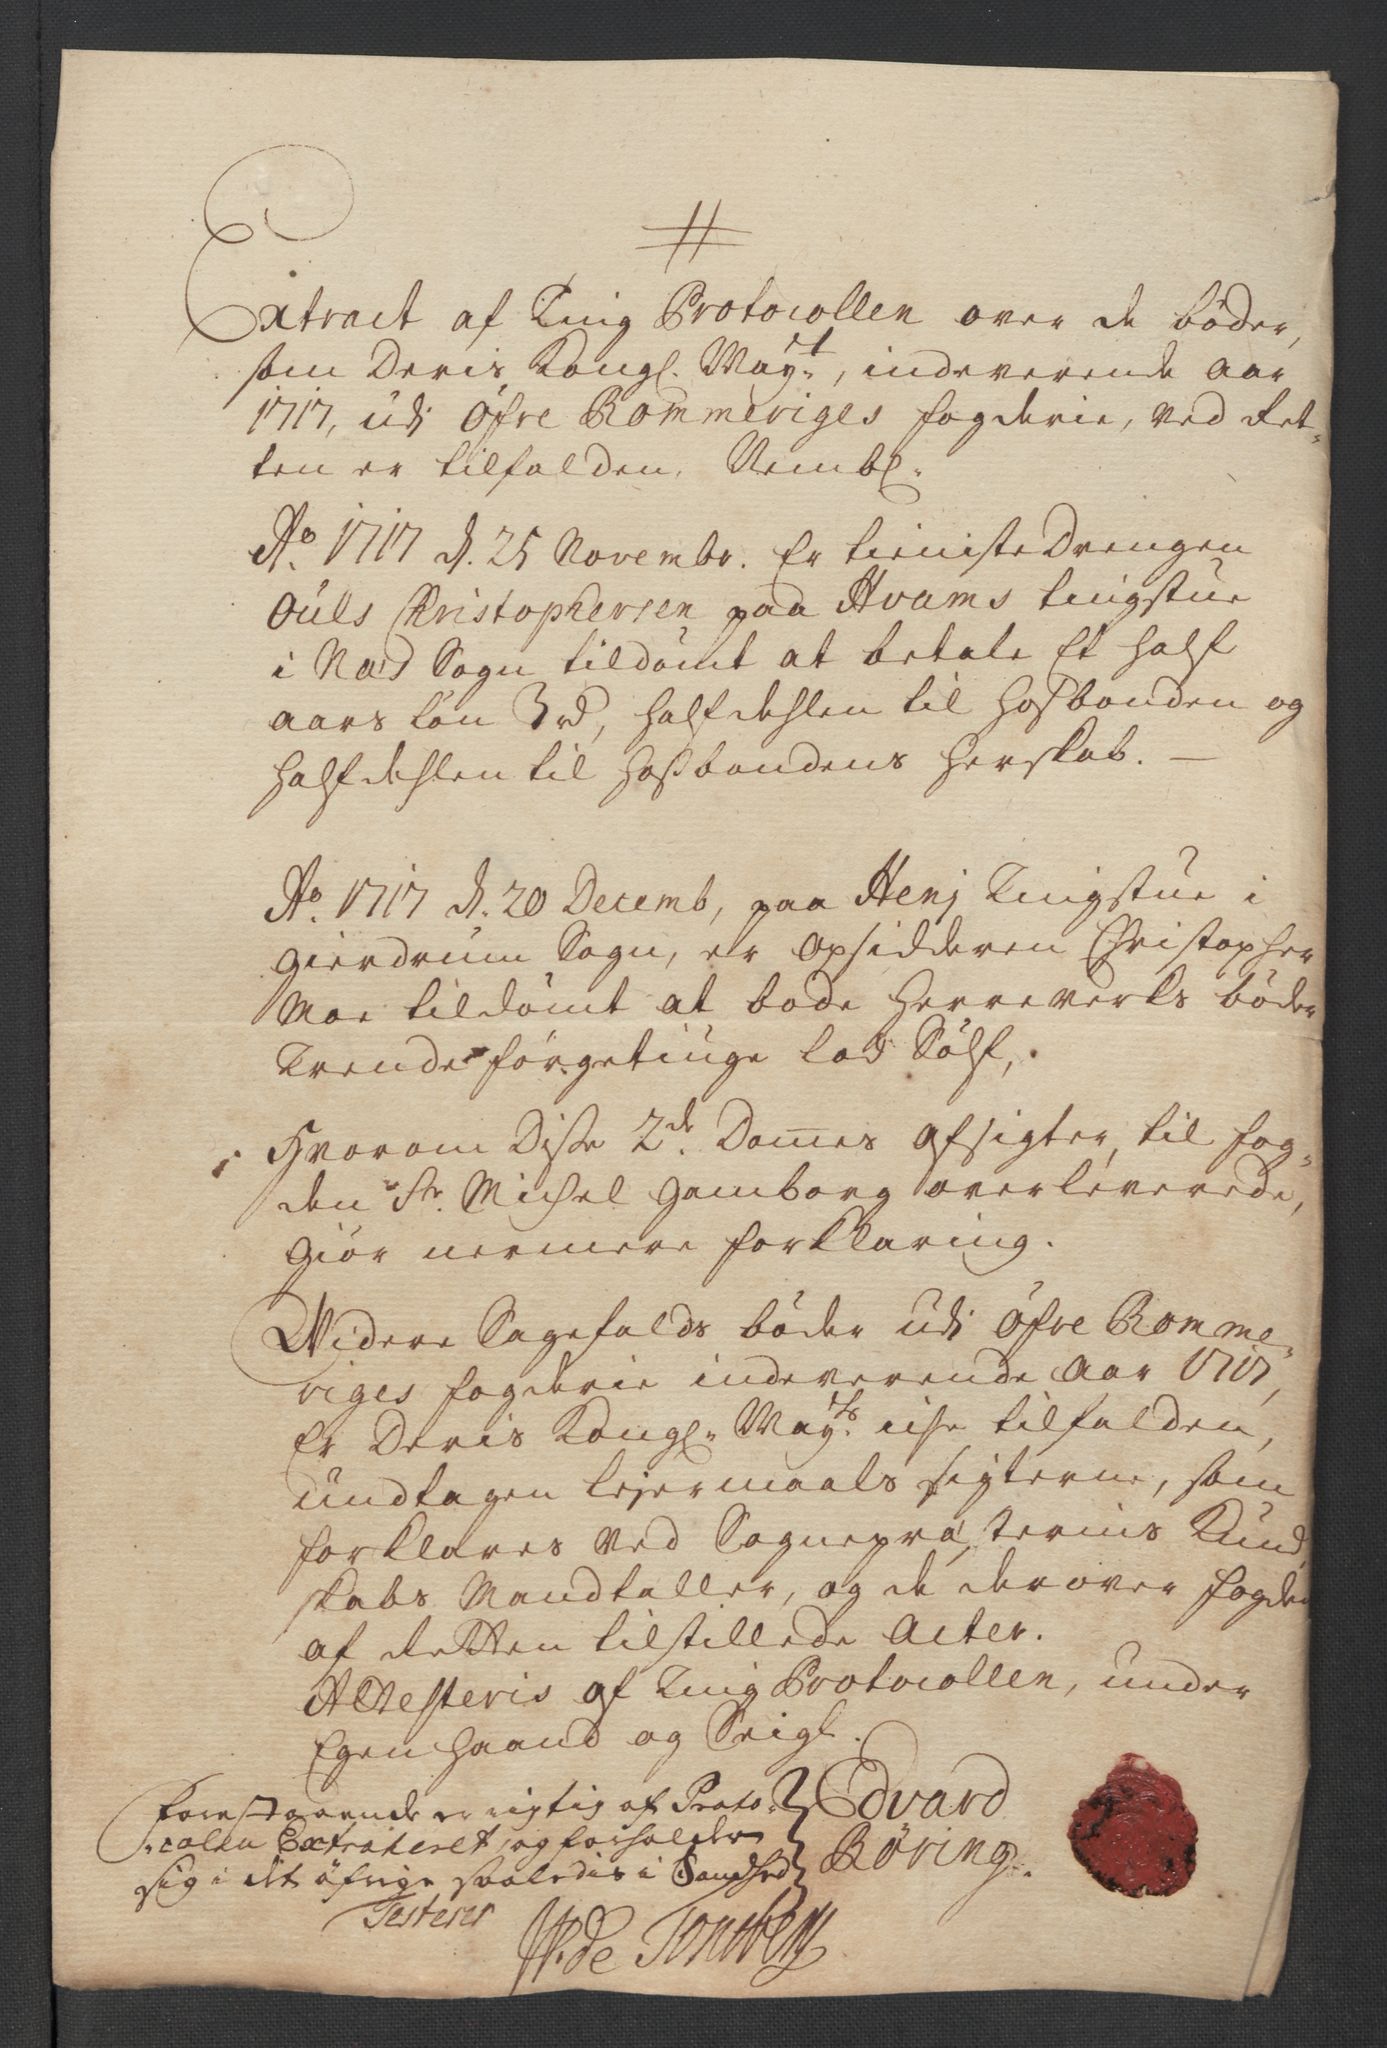 Extract af Ting Protocollen over de böder,
som Deris Kongl. May.t, indeverende Aar
1717, udi Öfre Rommeriges fogderie, ved Ret-
ten er tilfalden. Nembl.
Ao. 1717 d. 25 Novembr. Er tienisteDrengen
Ouls Christophersen paa Hvams tingstue
i Næs Sogn tildömt at betale Et half
aars Lön 3 rd, halfdehlen til Hoßbonden og
halfdehlen til hoßbondens herskab. —
Ao. 1717 d. 20 Decemb, paa Henj Tingstue i
Gierdrum Sogn, er Opsidderen Christopher
Moe tildömt at bode Herreverks böder
Trende förgetiuge Lod Sölf,
Hvorom Disse 2de. Domes afsigter, til fog-
den Sr. Michel Hamborg overleverede,
giör nermere forklaring.
Widere Sagefalds böder udi Öfre Romme-
riges fogderie indeverende Aar 1717,
Er Deris Kongl. May.ts iche tilfalden,
undtagen Lejermaals sigterne, som
forklares ved Sognepræsternis Kund-
skabs Mandtaller, og de derover fogden
af Retten tilstillede Acter.
Attesteris af Ting Protocollen, under
Egen haand og Seigl.
Edvard
Röring
Forestaaende er rigtig af Proto-
colen Extraheret, og forholder
sig i det öfrige saaledis i Sandhed
Testerer
de Tonsberg